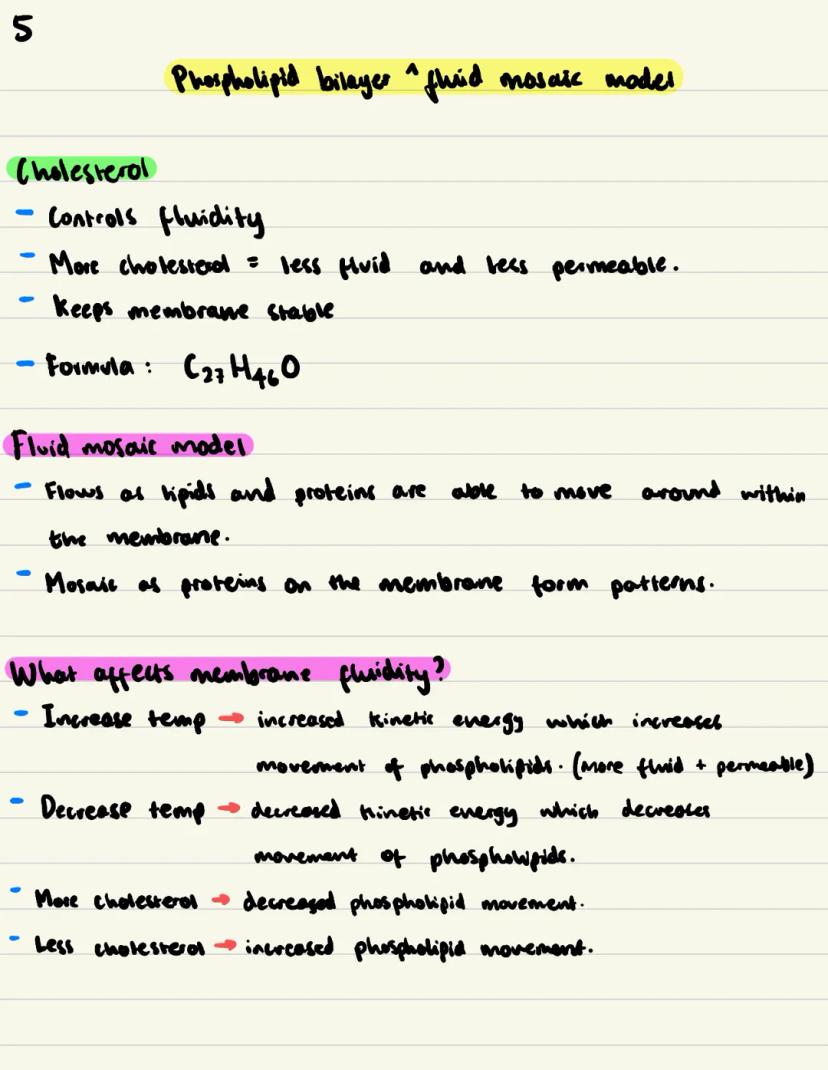 5
Phospholipid bilayer ^ fluid mosaic model
Cholesterol
- Controls fluidity
- More cholesterol = less fluid and less permeable.
- Keeps membrane stable
- Formula : C₂₇H₄₆O
Fluid mosaic model
- Flows as lipids and proteins are able to move around within
the membrane.
- Mosaic as proteins on the membrane form patterns.
What affects membrane fluidity?
- Increase temp → increased kinetic energy which increases
movement of phospholipids. (More fluid + permeable)
- Decrease temp → decreased kinetic energy which decreases
movement of phospholipids.
- More cholesterol → decreased phospholipid movement.
- Less cholesterol → increased phospholipid movement.